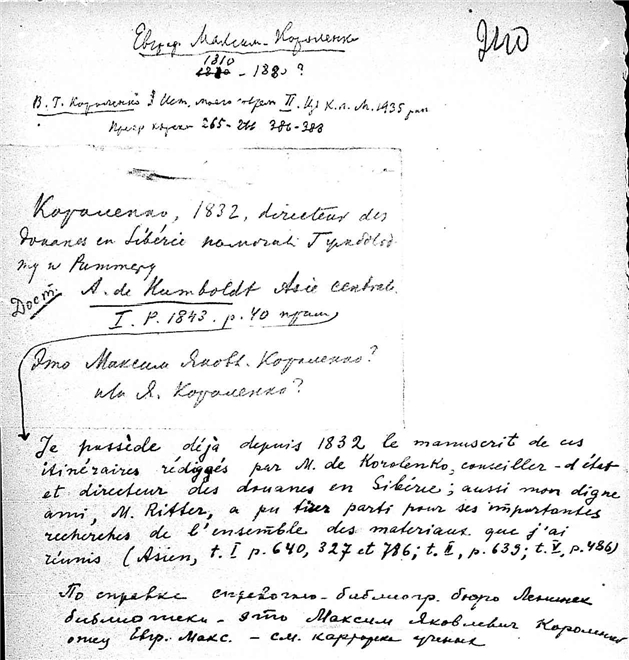 Евгр. Максим. Короленко
1810
1880 - 1880?
В. Г. Короленко Ист. моего совр. II. Изд. К. п. М. 1935
265-211 286-288
Короленко, 1832, directeur des
douanes en Sibérie помогал Гумбольд
ту и Риттеру
Дост. A. de Humboldt Asie central.
I. P. 1843. p. 40 прим
Это Максим Яковл. Короленко?
или Я. Короленко?
Je possède déjà depuis 1832 le manuscrit de ces
itinéraires rédigés par M. de Korolenko, conseiller-d'état
et directeur des douanes en Sibérie; aussi mon digne
ami, M. Ritter, a pu tirer parti pour ses importantes
recherches de l'ensemble des materiaux que j'ai
réunis (Asien, t. I p. 640, 327 et 786; t. II, p. 639; t. V, p. 486)
По справке справочно-библиогр. бюро Ленинск
библиотеки - это Максим Яковлевич Короленко
отец Евгр. Макс. - см. карточка